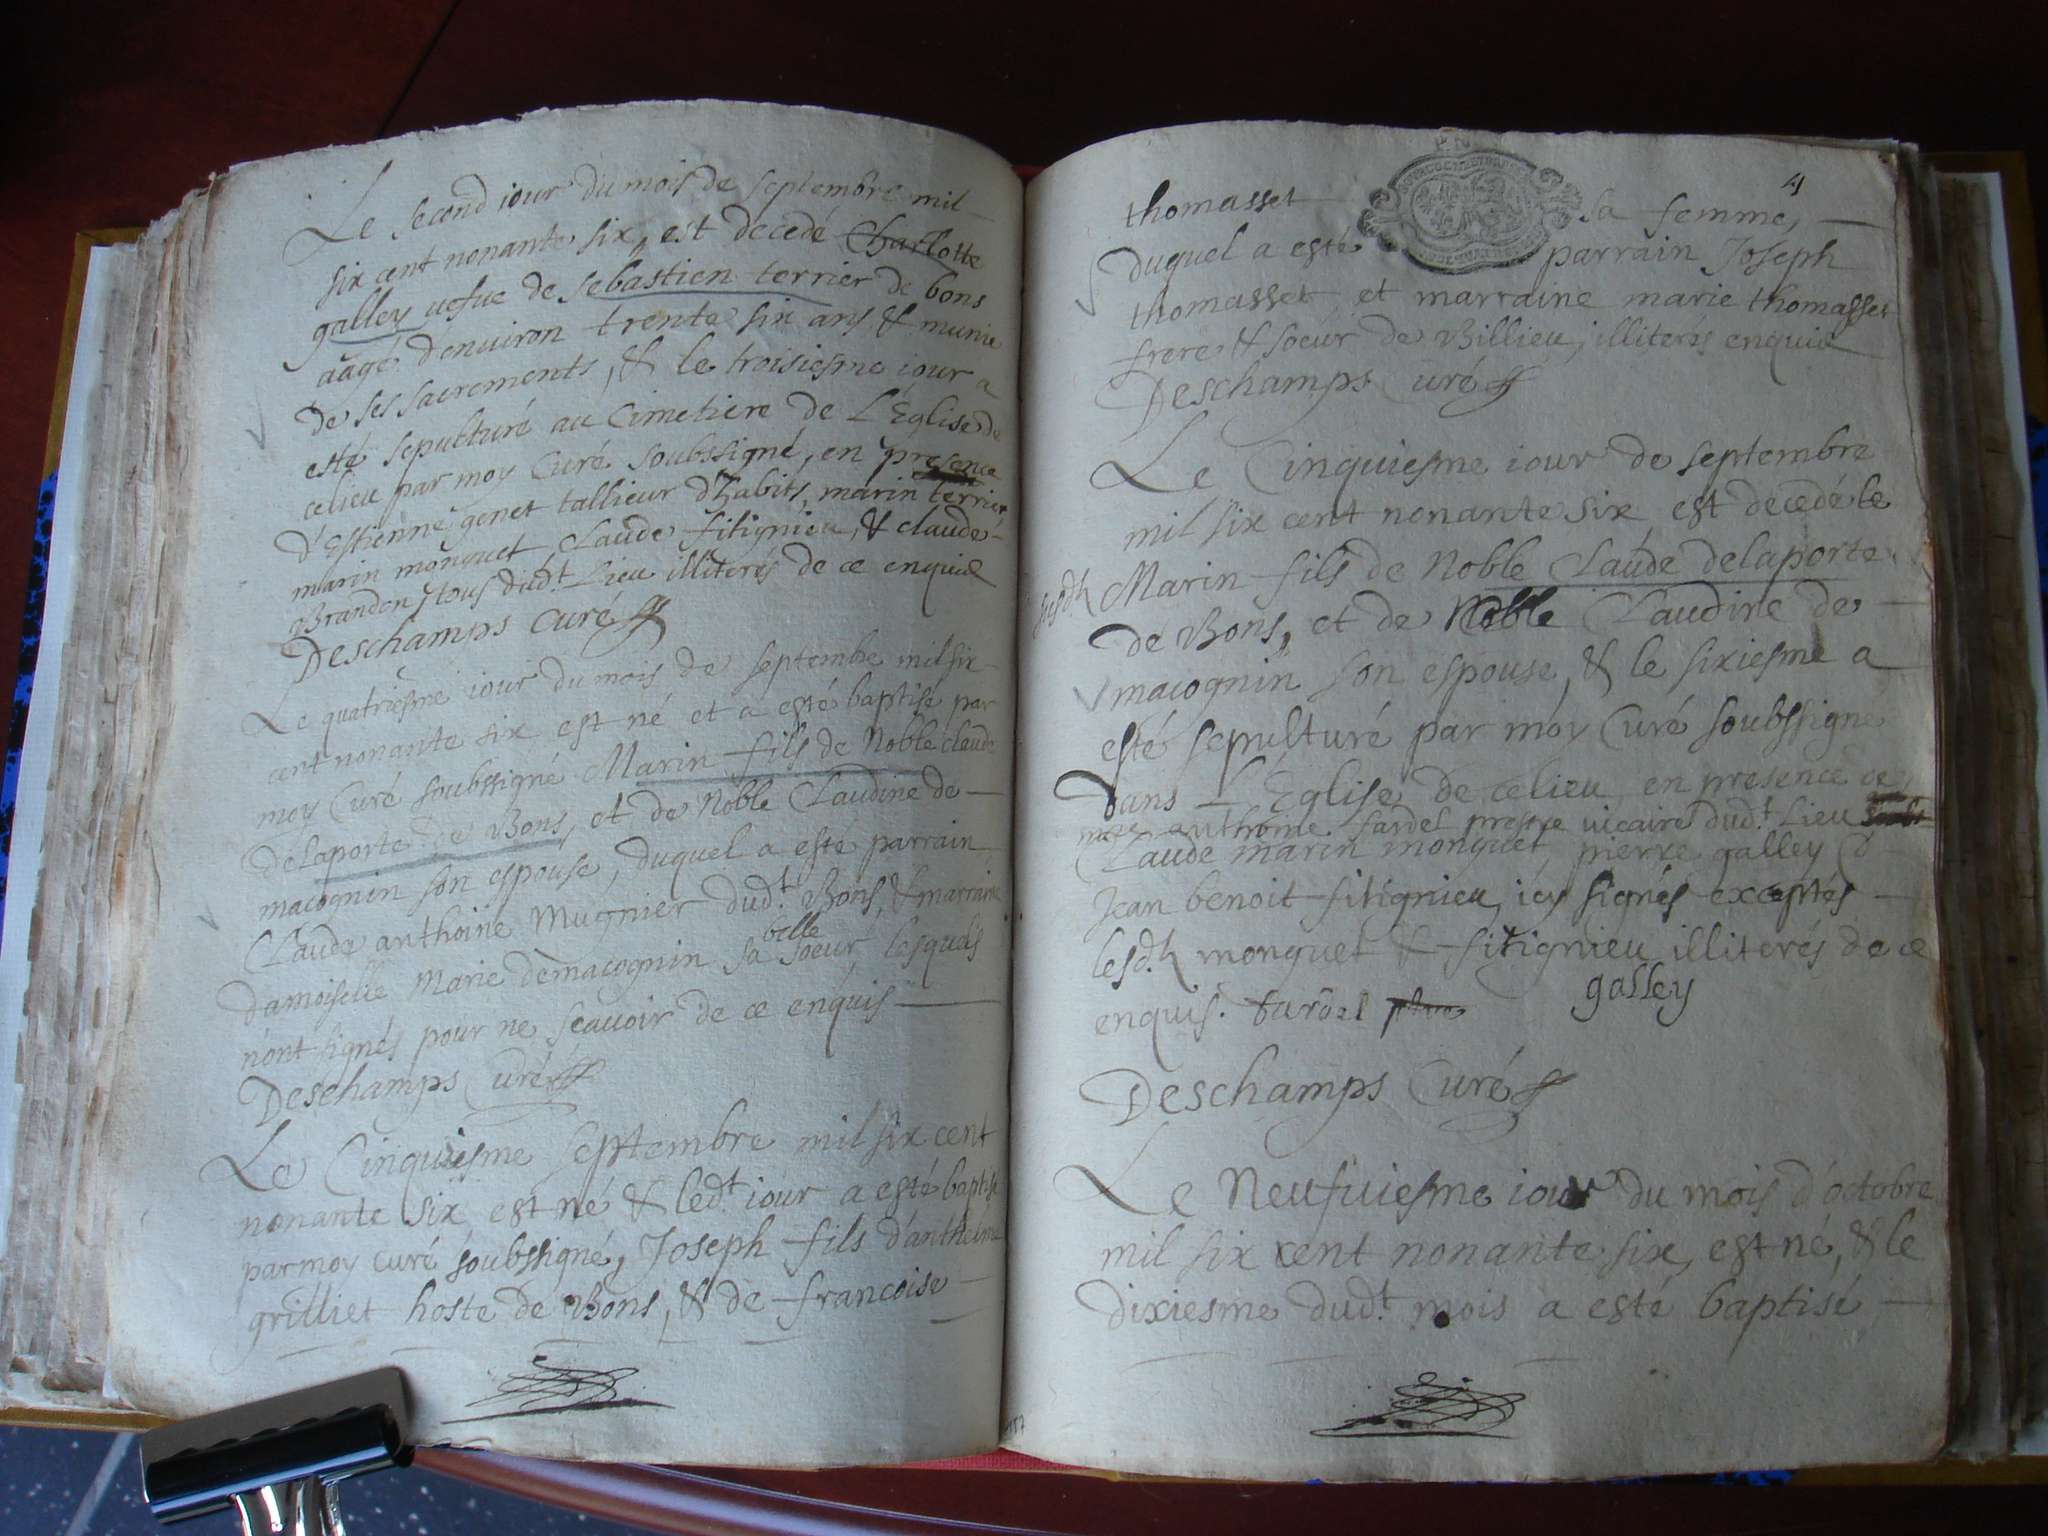 Le second iour du mois de septembre mil
six cent nonante six, est decedé Charlotte
galley uefue de sebastien terrier de bons
aagé denuiron trente six ans & munie
de ses sacrements, & le troisiesme iour a
esté sepulturé au Cimetiere de L'Eglise de
celieu par moy Curé soubssigné, en presence
d'Estienne genet tallieur d'habits, marin terrier
marin monguet Claude fitignieu, & claude
Brandon, tous dud.t Lieu illiterés de ce enquis
Deschamps Curé
Le quatriesme iour du mois de septembre mil six
cent nonante six est né et a esté baptisé par
moy Curé soubssigné Marin fils de Noble claude
delaporte de Bons, et de Noble Claudine de
macognin son espouse, duquel a esté parrain
Claude anthoine Mugnier dud.t Bons, & marraine
belle
damoiselle Marie demacognin sa soeur lesquels
n'ont signés pour ne scauoir de ce enquis
Deschamps Curé
Le Cinquiesme septembre mil six cent
nonante six est né & led.t iour a esté baptisé
par moy curé soubssigné, Joseph fils d'antheime
grilliet hoste de Bons, & de francoise
4
thomasset sa femme,
duquel a esté parrain Joseph
thomasset et marraine marie thomasset
frere & soeur de Billieu, illiterés enquis
Deschamps Curé
Le Cinquiesme iour de septembre
mil six cent nonante six est decedé le
susd.t Marin fils de Noble Claude delaporte
de Bons, et de Noble Claudine de
macognin son espouse, & le sixiesme a
esté sepulturé par moy Curé soubssigné
dans L'Eglise de celieu en presence de
anthoine fardel prestre uicaire dud.t Lieu
Claude marin monguet, pierre galley &
Jean benoit fitignieu, icy signés exceptés
lesd.ts monguet & fitignieu illiterés de ce
enquis. fardel galley
Deschamps Curé
Le Neufuiesme iour du mois d'octobre
mil six cent nonante six, est né, & le
dixiesme dud.t mois a esté baptisé
157